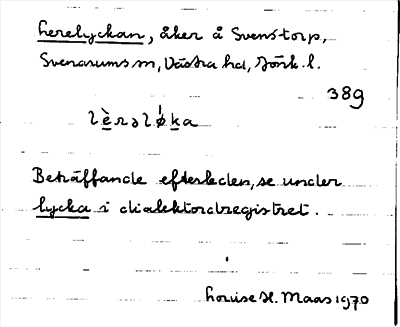 Lerelyckan, åker å Svenstorp,
Svenarums sn, Västra hd, Jönk. l.
389
lèrəlø̀ka
Beträffande efterleden, se under
lycka i dialektordregistret.
Louise H. Maas 1970